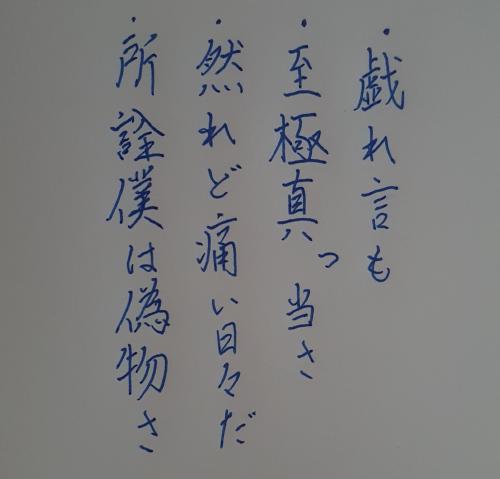 ・戯れ言も
・至極真っ当さ
・然れど痛い日々だ
・所詮僕は偽物さ